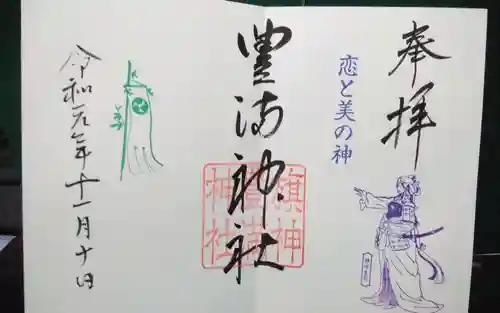 奉拝
恋と美の神
豊満神社
旗神
豊満
神社
令和元年十一月十日